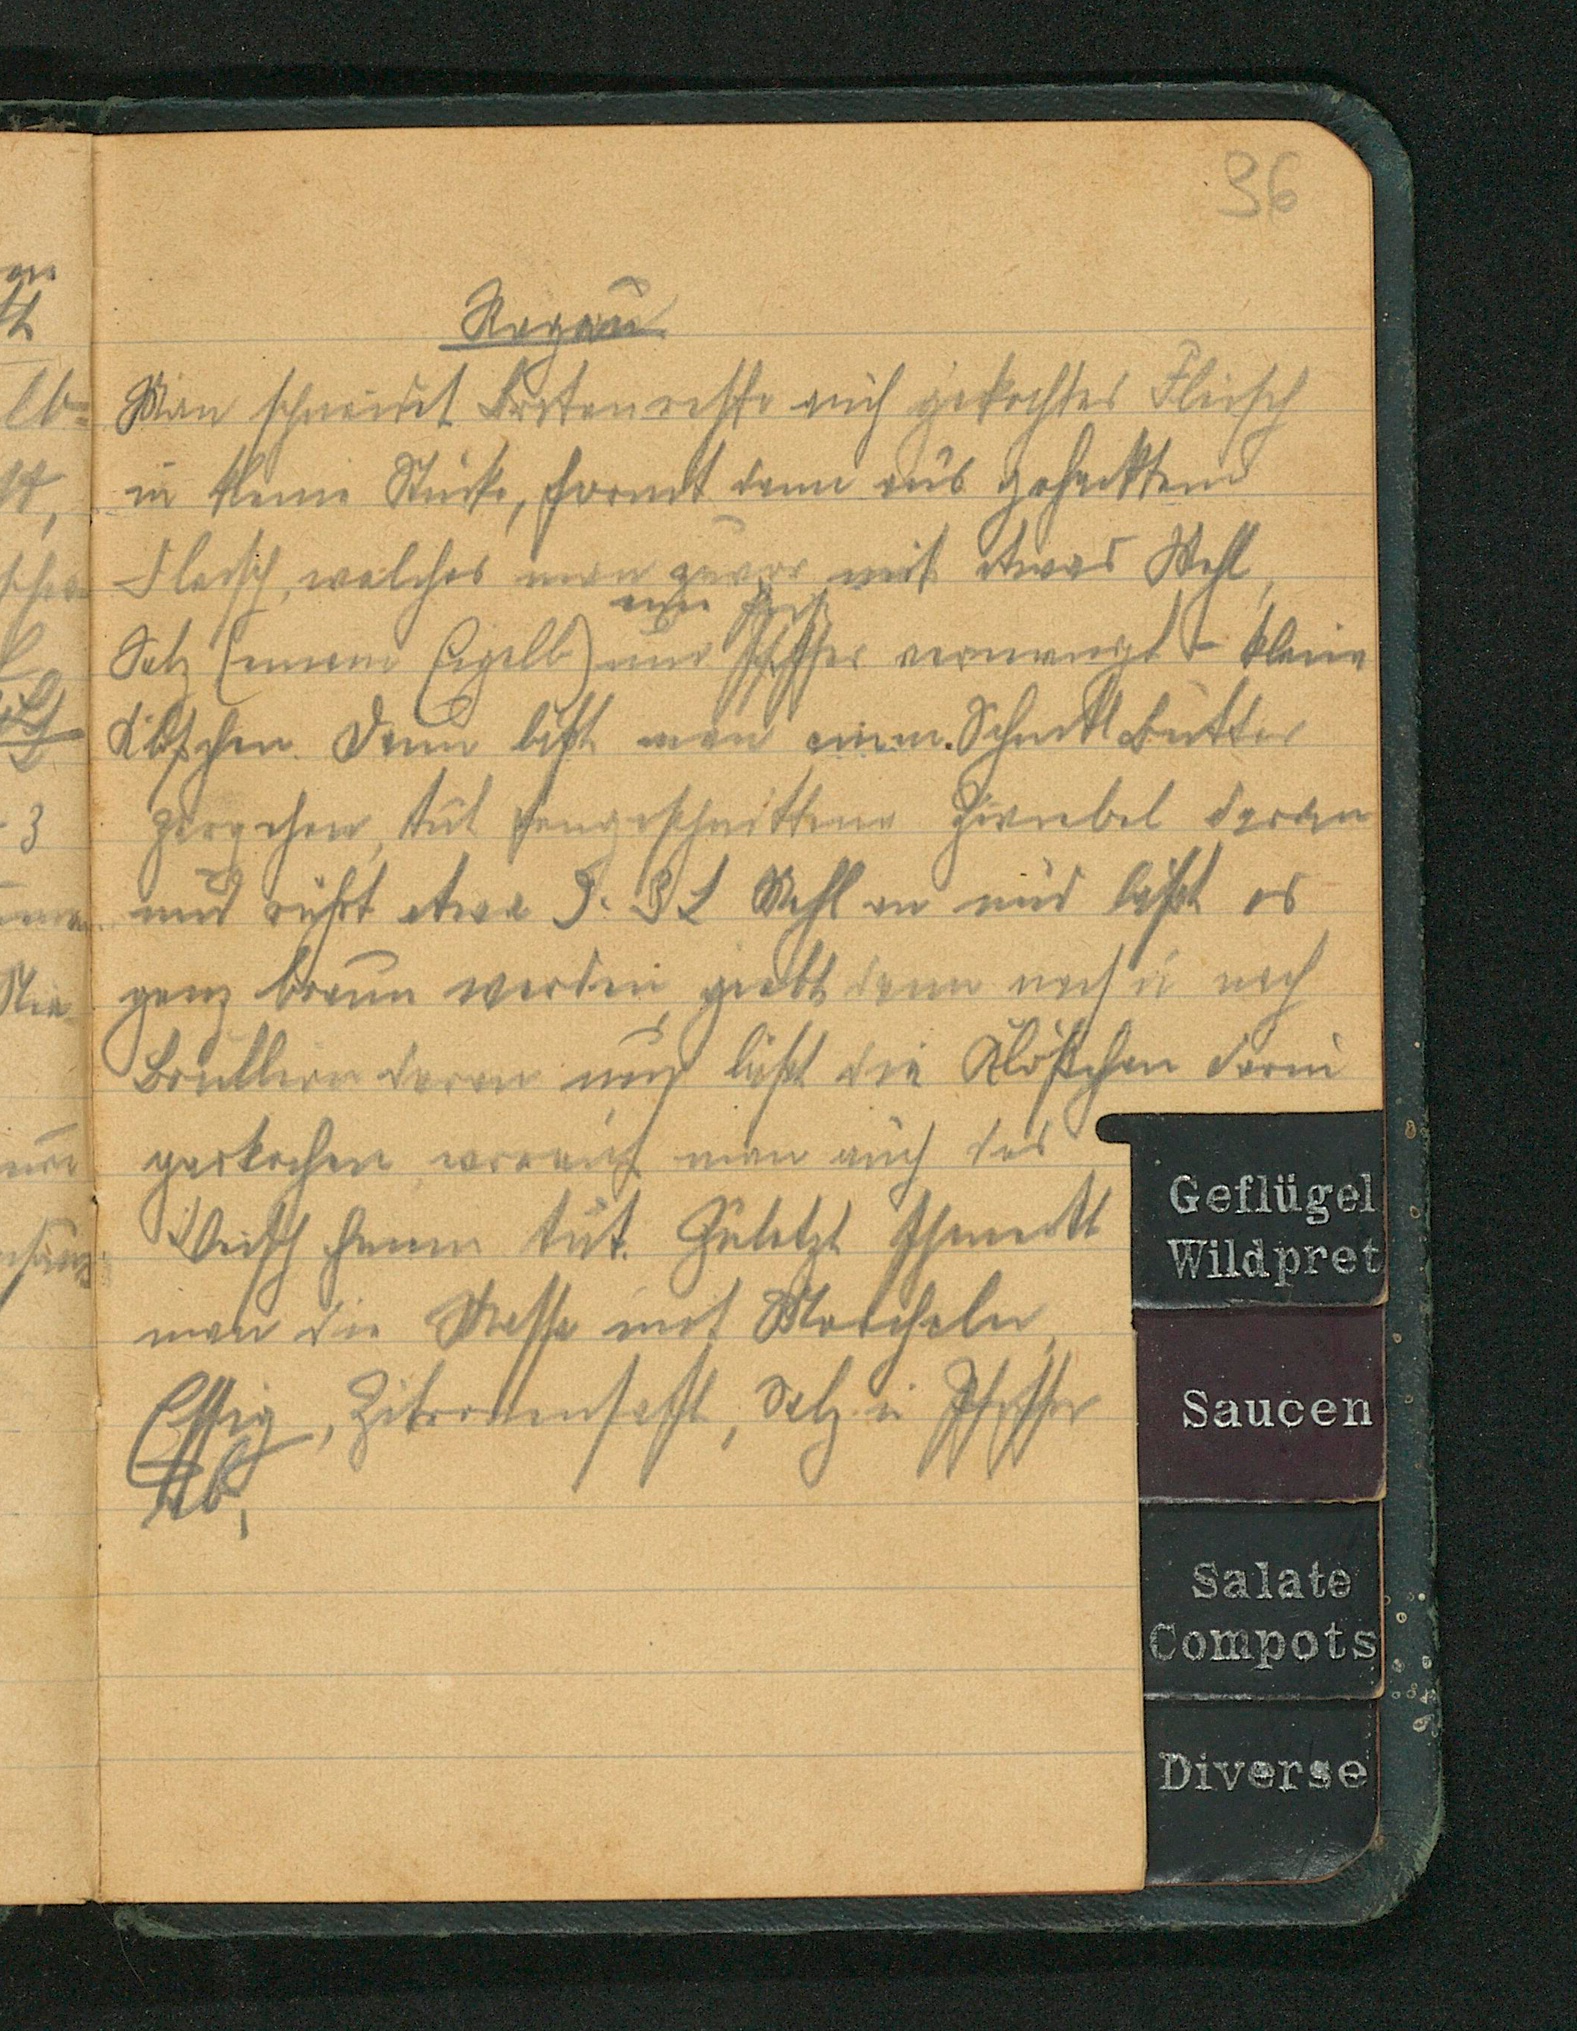 36
Ragou
Man schneidet Bratenreste auch gekochtes Fleisch
in kleine Stücke, formt dann aus gehacktem
Fleisch, welches man zuvor mit etwas Mehl,
Salz (einem Eigelb) und Pfeffer vermengt - kleine
Klößchen. Dann läßt man einen Schnittl Butter
zergehen, tut feingeschnittene Zwiebel daran
und rührt etwa 3 L Mehl an und läßt es
ganz braun werden, giebt dann nach u nach
Brüllion daran und läßt die Klößchen darin
garkochen, worauf man auch das
Fleisch hinein tut. Zuletzt schmeckt
man die Masse mit Morcheln,
Essig, Zitronensaft, Salz u Pfeffer
ab.
Geflügel
Wildpret
Saucen
Salate
Compots
Diverse